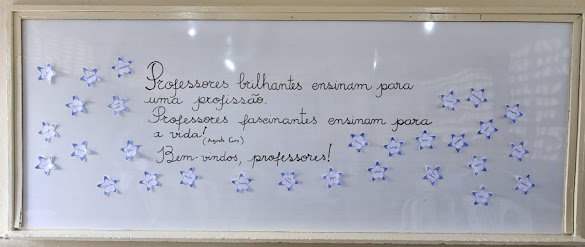 Professores brilhantes ensinam para
uma profissão.
Professores fascinantes ensinam para
a vida! (Augusto Cury)
Bem-vindos, professores!